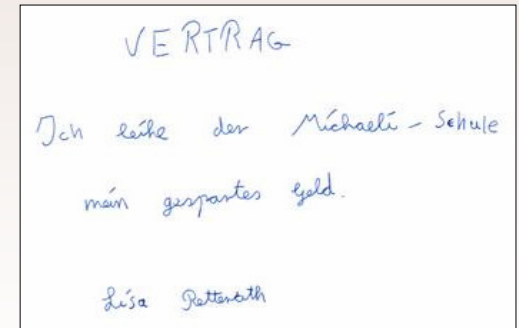 VERTRAG
Ich leihe der Michaeli-Schule
mein gespartes Geld.
Lisa Rettenrath